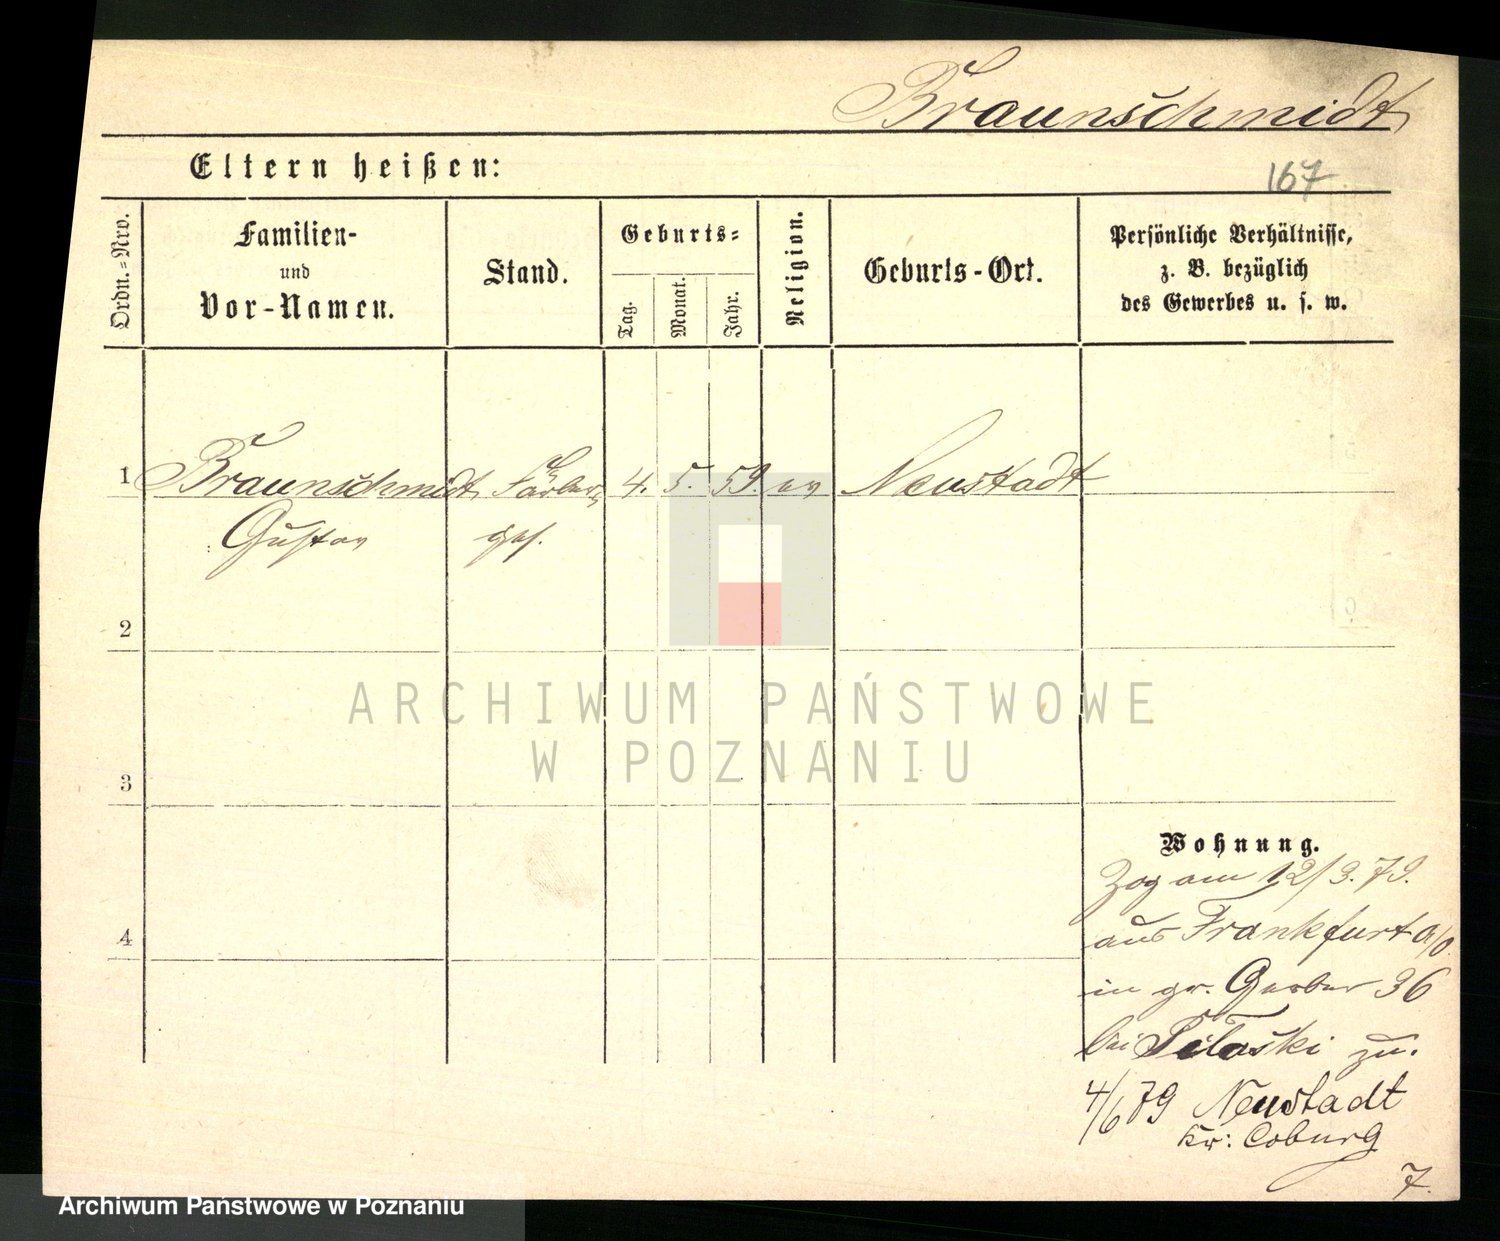 Braunschmidt
167
Eltern heißen:
Ordn.-Nro.
Familien-
und
Vor-Namen.
Stand.
Geburts-
Tag.
Monat.
Jahr.
Religion.
Geburts-Ort.
Persönliche Verhältnisse,
z. B. bezüglich
des Gewerbes u. s. w.
1 Braunschmidt Färber 4. 5. 59. ev Neustadt
Gustav ges.
2
3
4
Wohnung.
Zog am 12/3. 79.
aus Frankfurt a/O.
in gr. Gerber 36
bei zu.
4/6 79 Neustadt
Kr: Coburg
7.
ARCHIWUM PAŃSTWOWE
W POZNANIU
Archiwum Państwowe w Poznaniu